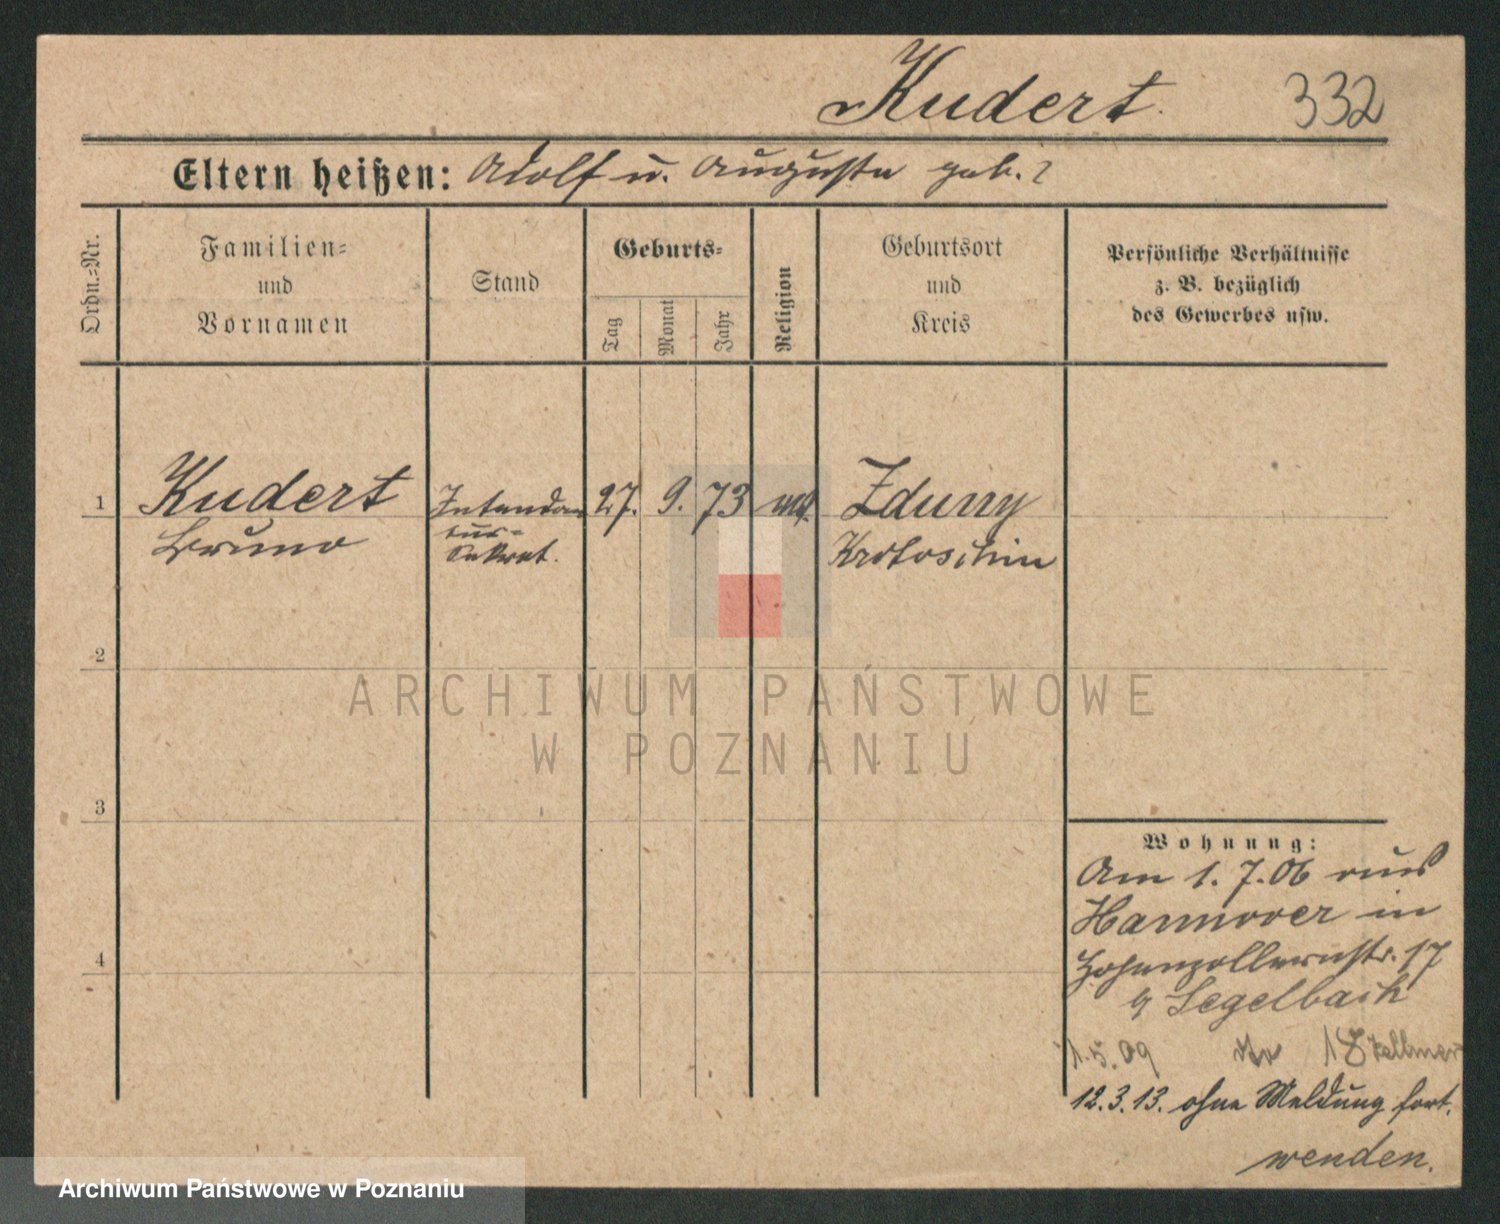 Kudert. 332
Eltern heißen: Adolf u. Auguste geb. ?
Ordn.=Nr.
Familien=
und
Vornamen
Stand
Geburts=
Tag
Monat
Jahr
Religion
Geburtsort
und
Kreis
Persönliche Verhältnisse
z. B. bezüglich
des Gewerbes usw.
1 Kudert Intendan 27. 9. 73 Zduny
Bruno tur=
Sekret. Krotoschin
2
3
4
Wohnung:
Am 1. 7. 06 aus
Hannover in
Hohenzollernstr. 17
b/ Segelbach
1.5.09 18
12.3.13. ohne Meldung fort.
wenden.
ARCHIWUM PAŃSTWOWE
W POZNANIU
Archiwum Państwowe w Poznaniu